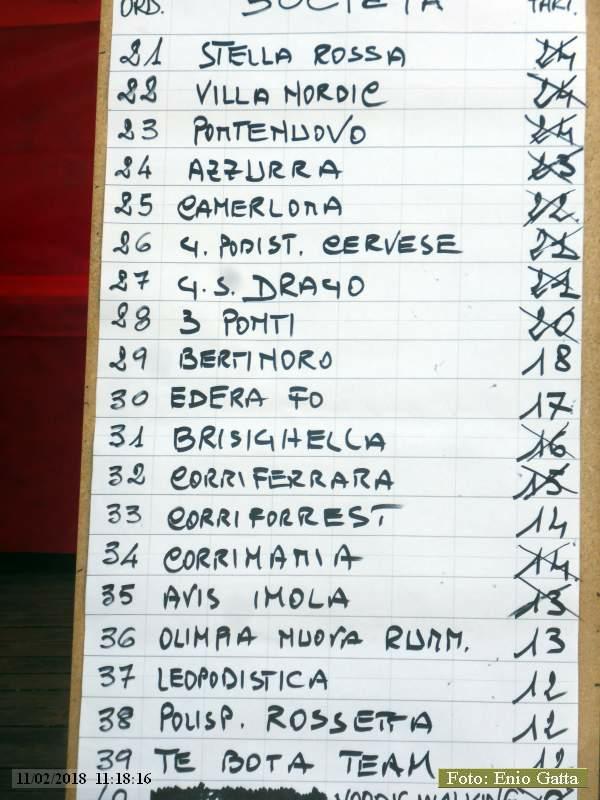 ORD. SOCIETÀ PART.
21 STELLA ROSSA 24
22 VILLA NORDIC 24
23 PONTENUOVO 24
24 AZZURRA 23
25 CAMERLONA 22
26 G. PODIST. CERVESE 21
27 G.S. DRAGO 21
28 3 PONTI 20
29 BERTINORO 18
30 EDERA FO 17
31 BRISIGHELLA 16
32 CORRIFERRARA 15
33 CORRIFORREST 14
34 CORRIMANIA 14
35 AVIS IMOLA 13
36 OLIMPIA NUOVA RUNN. 13
37 LEOPODISTICA 12
38 POLISP. ROSSETTA 12
39 TE BOTA TEAM 12
NORDIC WALKING
11/02/2018 11:18:16
Foto: Enio Gatta